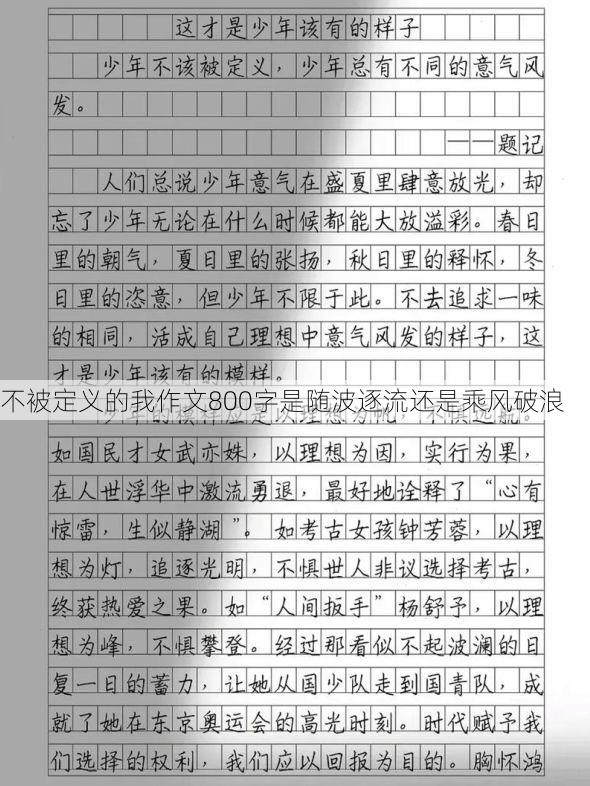 这才是少年该有的样子
少年不该被定义，少年总有不同的意气风
发。
——题记
人们总说少年意气在盛夏里肆意放光，却
忘了少年无论在什么时候都能大放溢彩。春日
里的朝气，夏日里的张扬，秋日里的释怀，冬
日里的恣意，但少年不限于此。不去追求一味
的相同，活成自己理想中意气风发的样子，这
才是少年该有的模样。
不被定义的我作文800字是随波逐流还是乘风破浪
少年的模样应是以理想为帆，不惧远航。
如国民才女武亦姝，以理想为因，实行为果，
在人世浮华中激流勇退，最好地诠释了“心有
惊雷，生似静湖”。如考古女孩钟芳蓉，以理
想为灯，追逐光明，不惧世人非议选择考古，
终获热爱之果。如“人间扳手”杨舒予，以理
想为峰，不惧攀登。经过那看似不起波澜的日
复一日的蓄力，让她从国少队走到国青队，成
就了她在东京奥运会的高光时刻。时代赋予我
们选择的权利，我们应以回报为目的。胸怀鸿